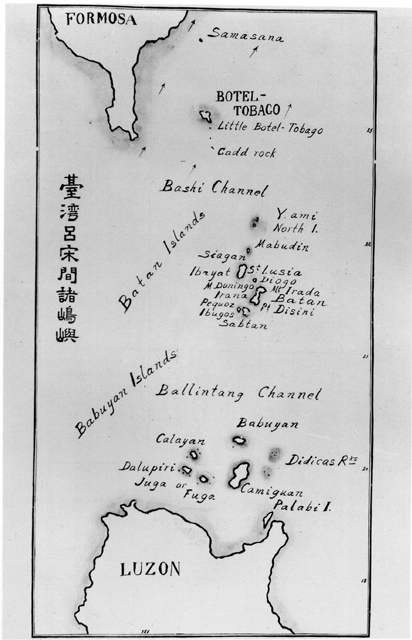 FORMOSA
Samasana
BOTEL-
TOBAGO
Little Botel-Tobago
Gadd rock
Bashi Channel
臺灣呂宋間諸嶋嶼
Batan Islands
Yami
North I.
Mabudin
Siagan
Ibayat
Sta Lusia
Diogo
M. Domingo
Mt Irada
Irana
Batan
Pt Disini
Pequoz
Ibugos
Sabtan
Babuyan Islands
Ballintang Channel
Babuyan
Calayan
Didicas Rks
Dalupiri
Juga or
Fuga
Camiguan
Palabi I.
LUZON
21
20